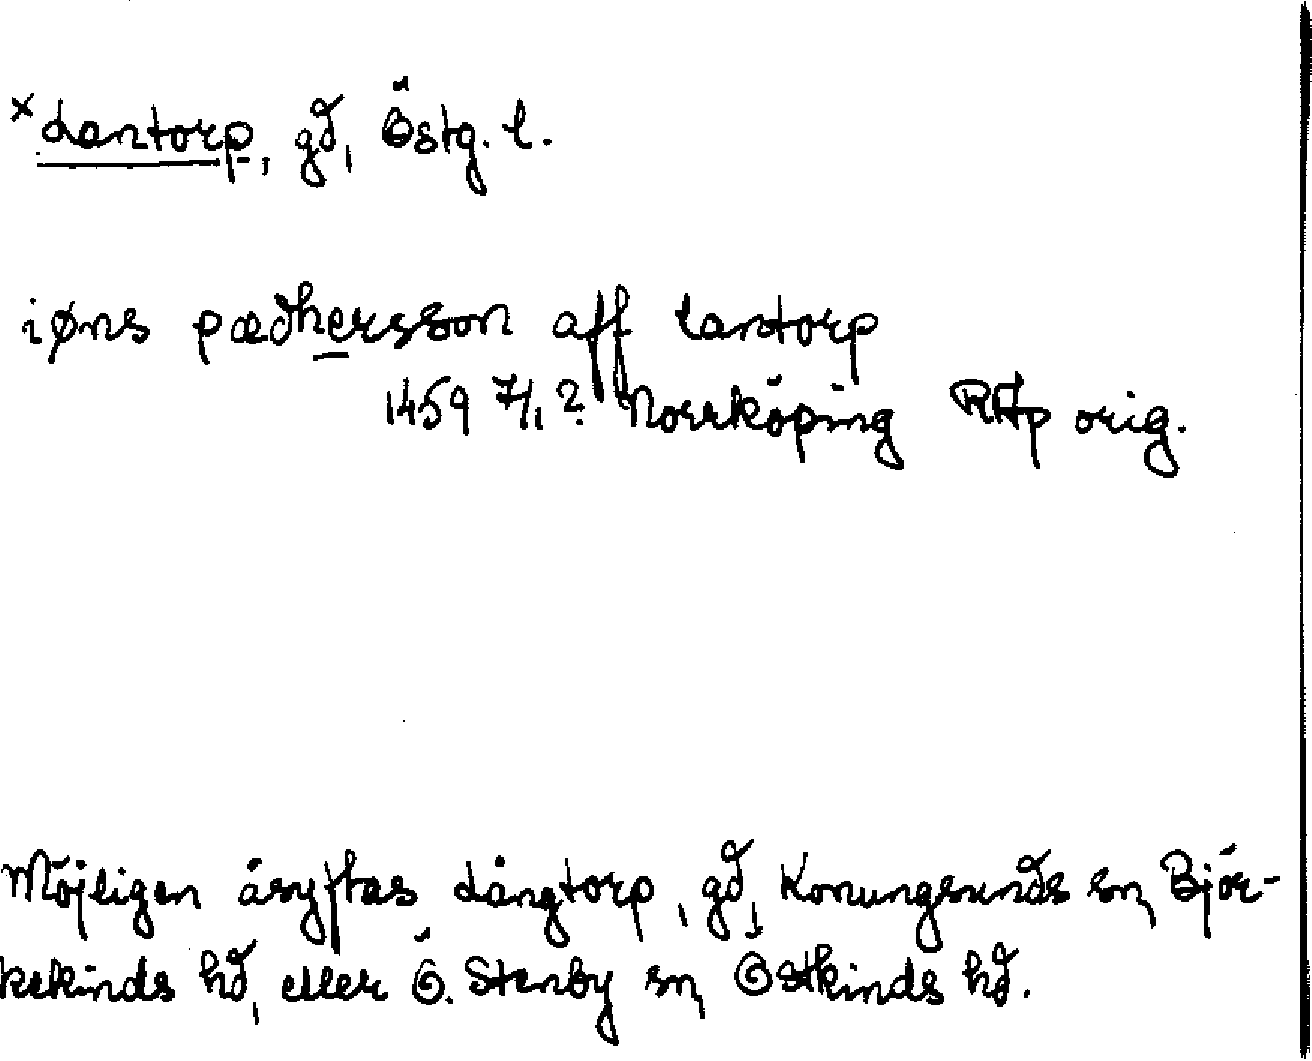 × Lantorp, gd, Östg. l.
iøns pædhersson aff lantorp
1459 7/1 ? Norrköping RAp orig.
Möjligen åsyftas Långtorp, gd, Konungsunds sn, Björ-
kekinds hd, eller Ö. Stenby sn, Östkinds hd.